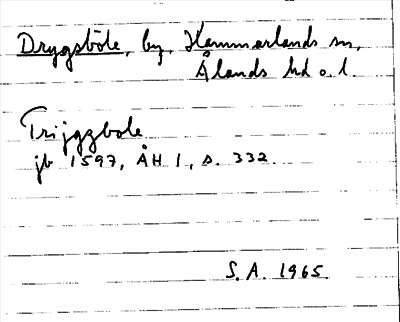 Drygsböle, by, Hammarlands sn,
Ålands hd o. l.
Trijgzbole
jb 1597, ÅH 1, s. 332.
S. A. 1965